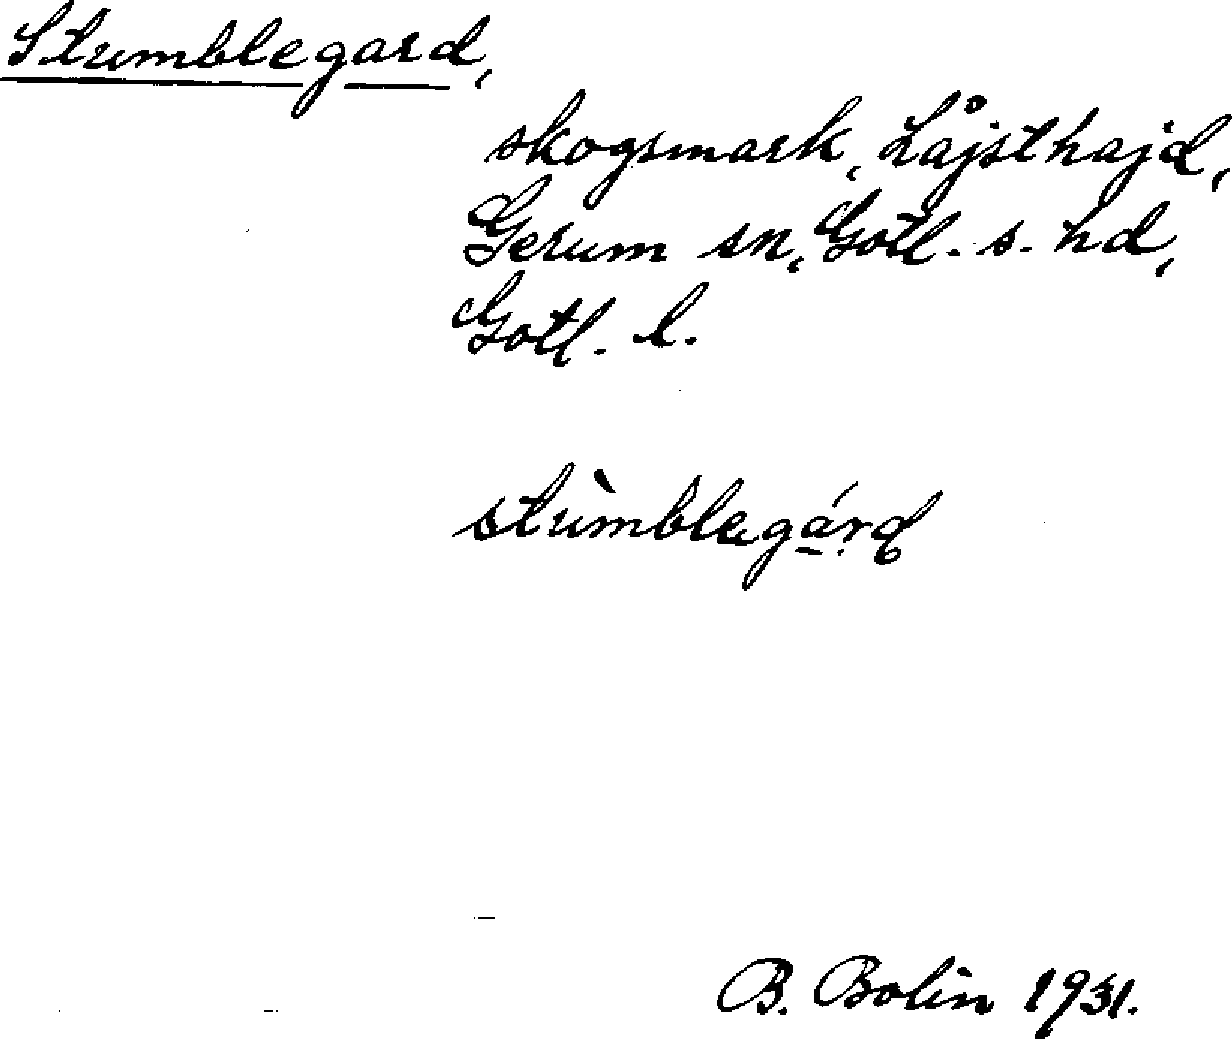 Stumblegard,
skogsmark, Låjsthajd,
Gerum sn, Gotl. s. hd,
Gotl. l.
stùmblegárd
B. Bolin 1931.